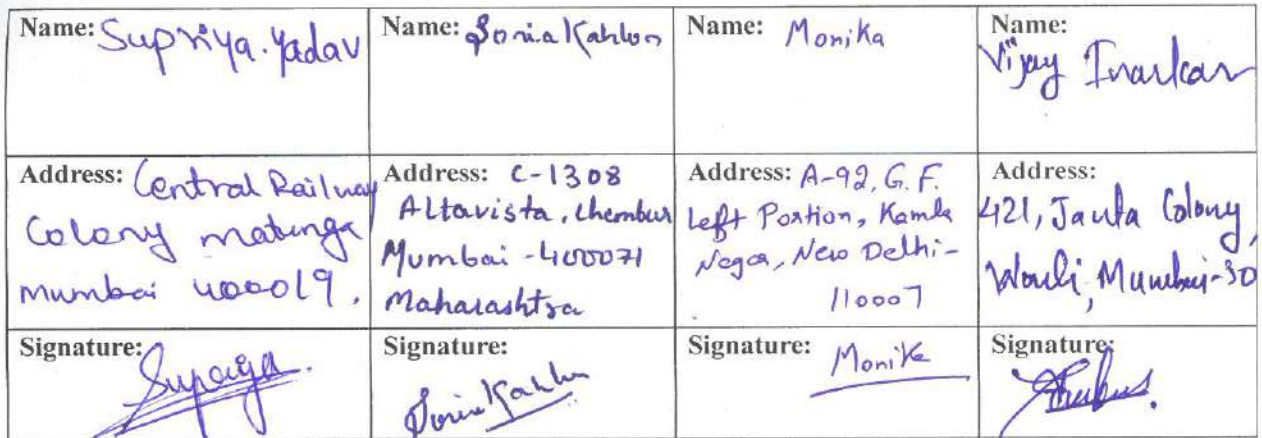 Name: Supriya. Yadav
Name: Sonia Kahlon
Name: Monika
Name:
Vijay Inarkar
Address: Central Railway
Colony matunga
Mumbai 400019.
Address: C-1308
Altavista, Chembur
Mumbai - 400071
Maharashtra
Address: A-92, G.F.
Left Portion, Kamla
Nagar, New Delhi-
110007
Address:
421, Janta Colony,
Worli, Mumbai-30
Signature: Supriya.
Signature:
Sonia Kahlon
Signature: Monika
Signature: